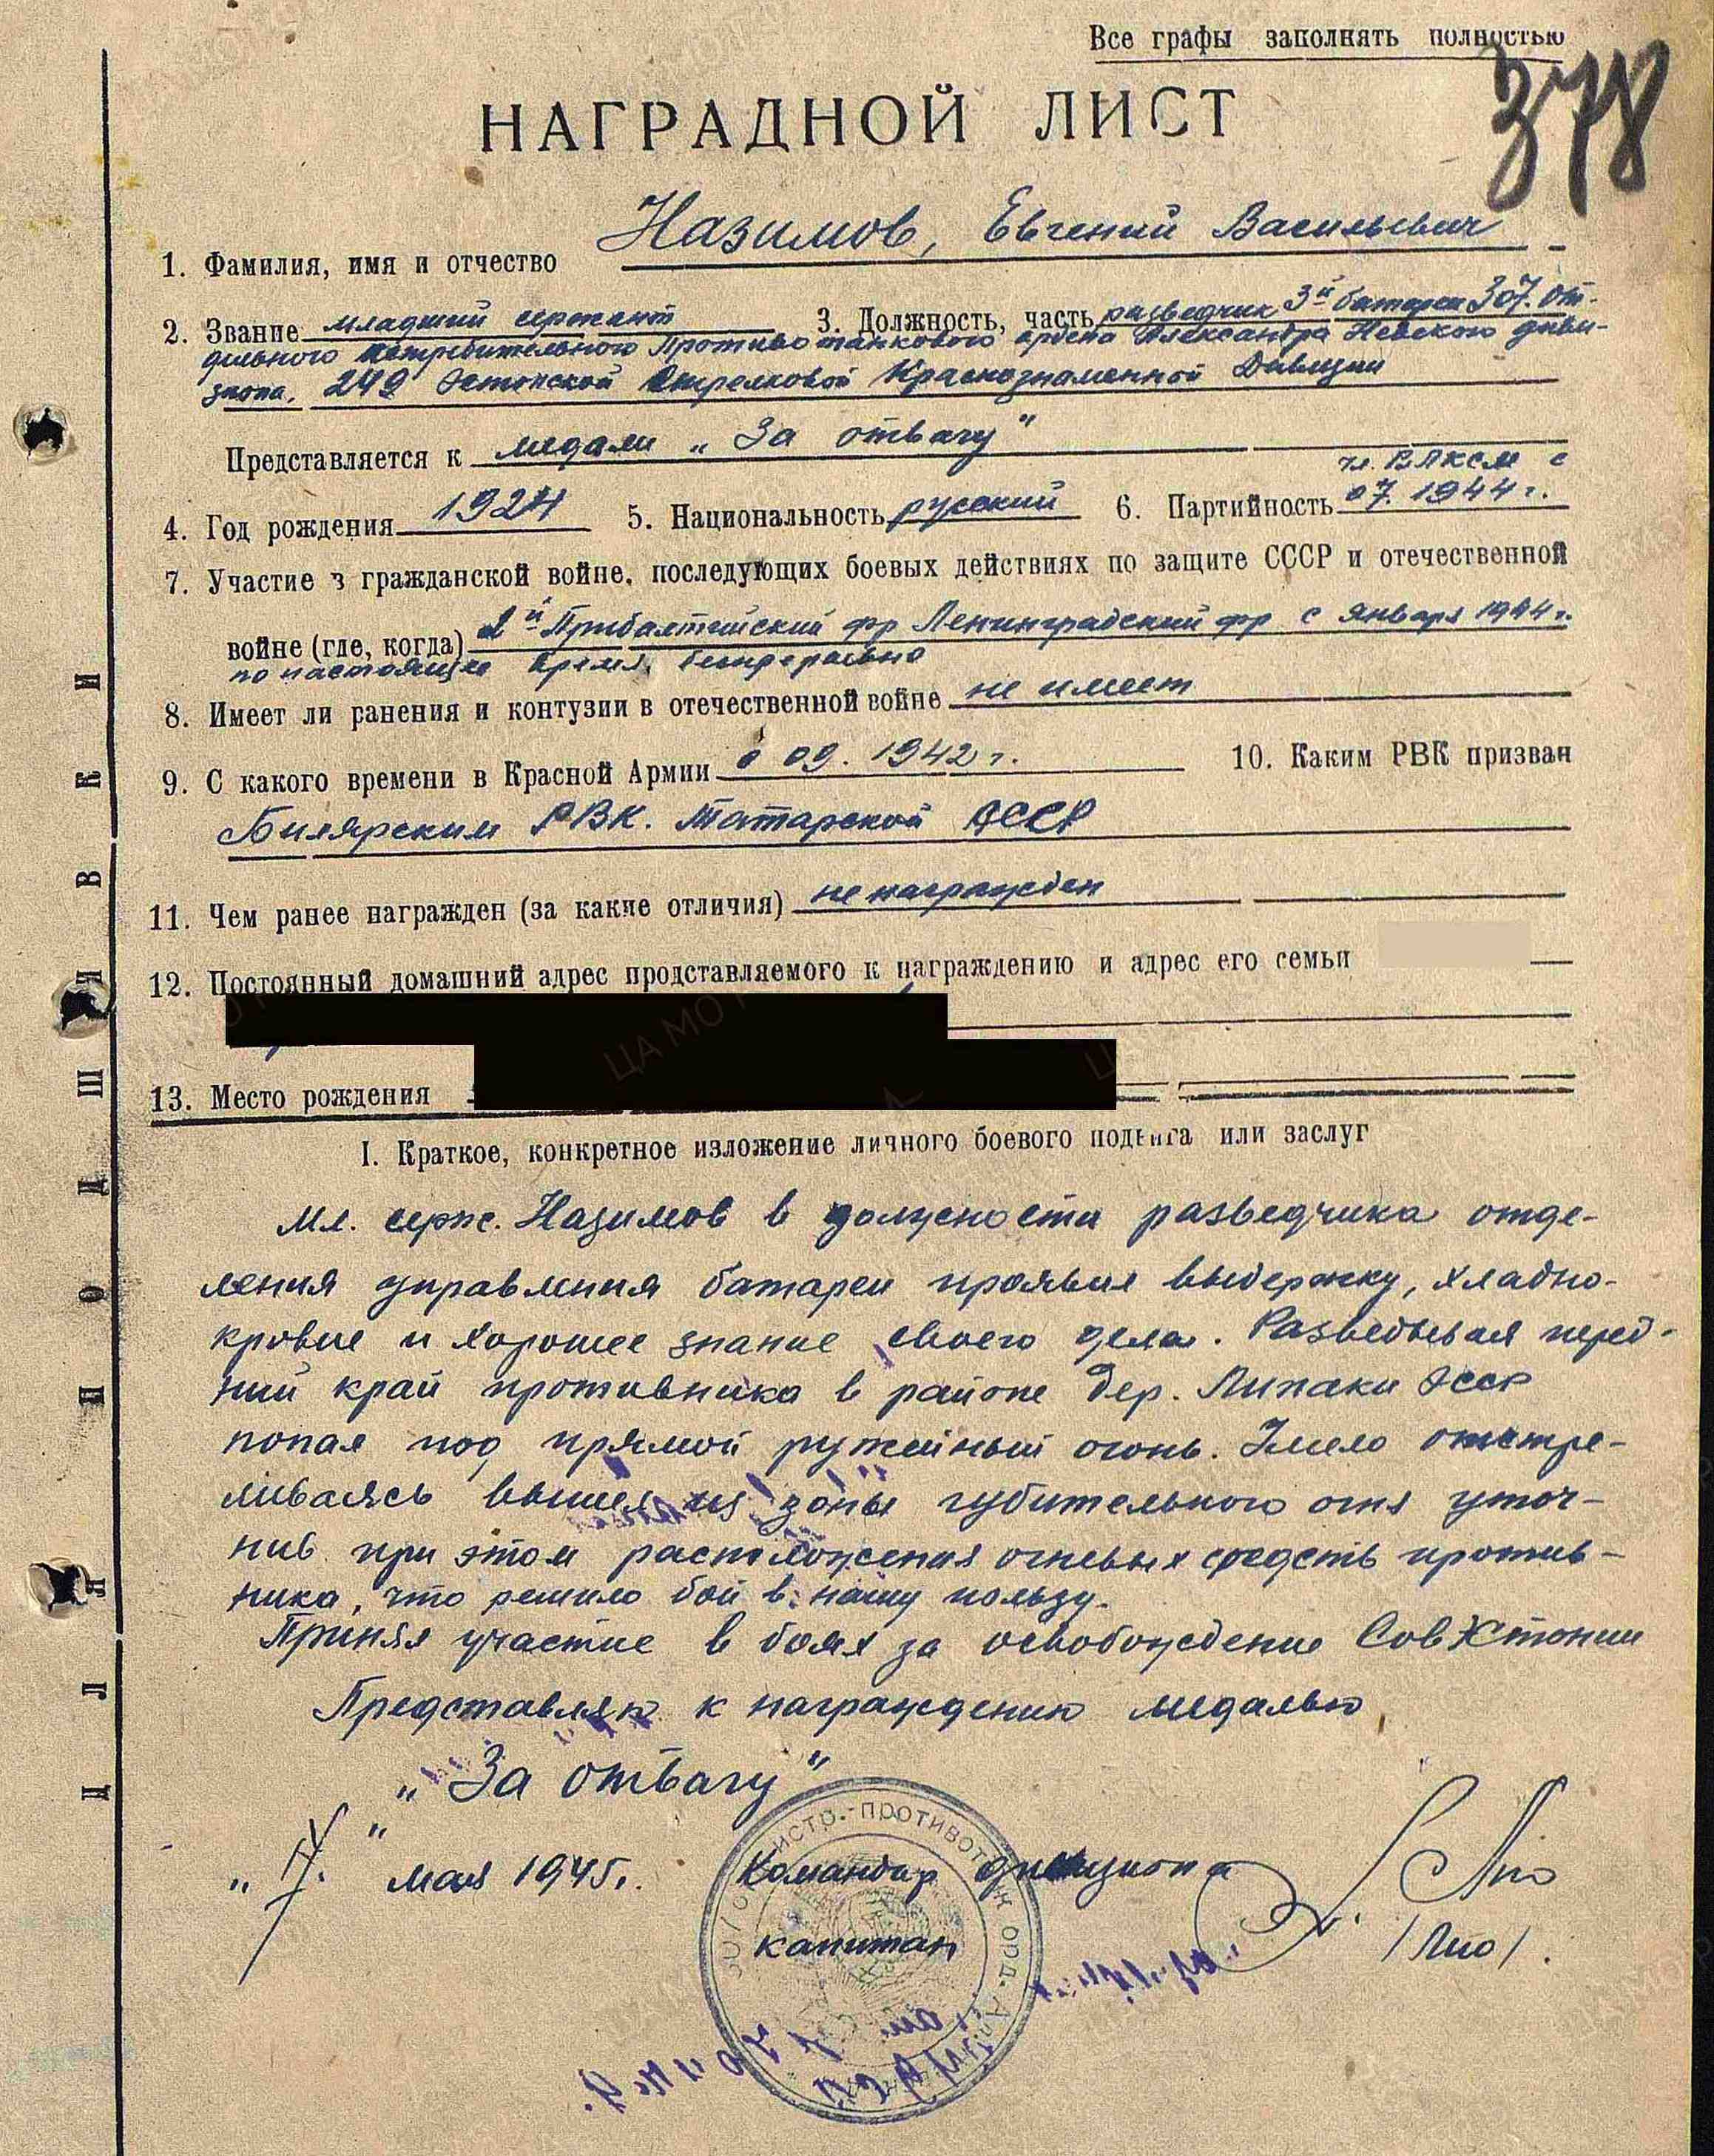 Все графы заполнять полностью
378
НАГРАДНОЙ ЛИСТ
1. Фамилия, имя и отчество Назимов, Евгений Васильевич
2. Звание младший сержант 3. Должность, часть разведчик 3й батареи 307. от-
дельного истребительного Противотанкового ордена Александра Невского диви-
зиона, 249 Эстонской Стрелковой Краснознаменной Дивизии
Представляется к медали „За отвагу"
чл. ВЛКСМ с
4. Год рождения 1924 5. Национальность русский 6. Партийность 07. 1944 г.
7. Участие в гражданской войне, последующих боевых действиях по защите СССР и отечественной
войне (где, когда) 2й Прибалтийский фр Ленинградский фр с января 1944 г.
по настоящее время, беспрерывно
8. Имеет ли ранения и контузии в отечественной войне не имеет
9. С какого времени в Красной Армии с 09. 1942 г. 10. Каким РВК призван
Билярским РВК. Татарской АССР
11. Чем ранее награжден (за какие отличия) не награжден
12. Постоянный домашний адрес продставляемого к награждению и адрес его семьи
13. Место рождения
I. Краткое, конкретное изложение личного боевого подвига или заслуг
Мл. серж. Назимов в должности разведчика отде-
ления управления батареи проявил выдержку, хладно-
кровие и хорошее знание своего дела. Разведывая перед-
ний край противника в районе дер. Липаки ЭССР
попал под прямой ружейный огонь. Умело отстре-
ливаясь вышел из зоны губительного огня уточ-
нив при этом расположения огневых средств против-
ника, что решило бой в нашу пользу.
Принял участие в боях за освобождение Сов Эстонии
Представляю к награждению медалью
„За отвагу"
„7." мая 1945г. Командир дивизиона
капитан /Лио/.
истр.-противот
орд.
ДЛЯ ПОДШИВКИ
ЦА МО